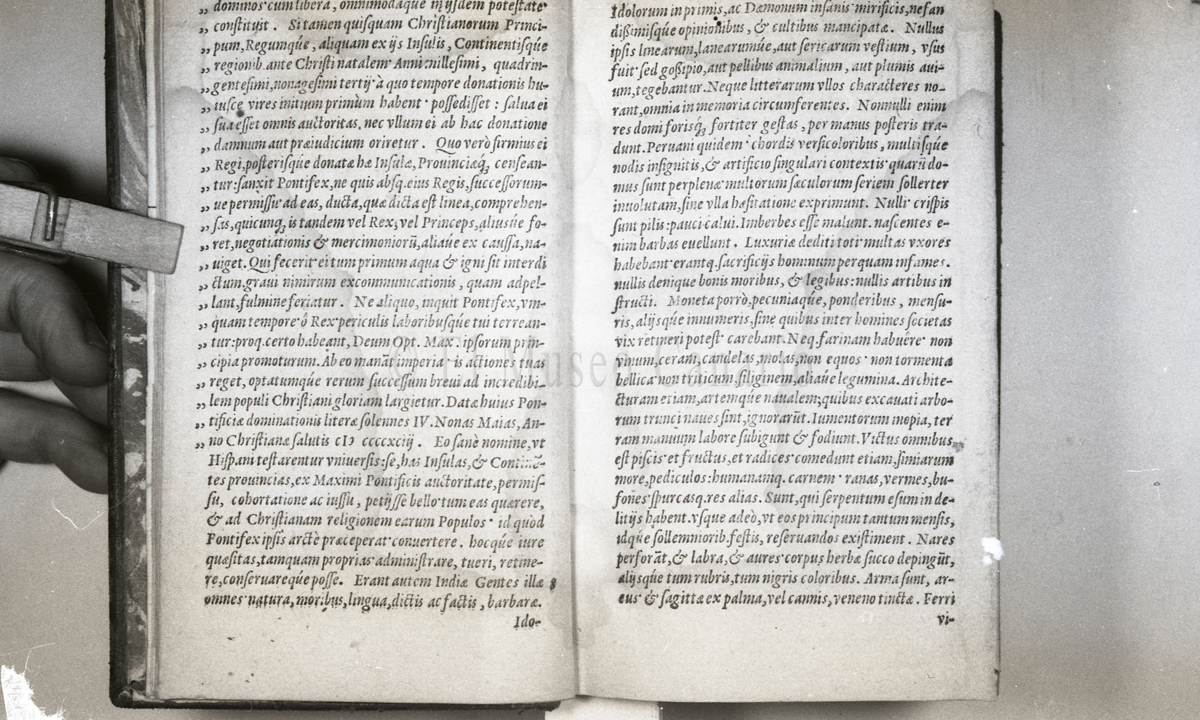 dominos cum libera, omnimodaque in ijsdem potestate
„ constituit. Si tamen quisquam Christianorum Princi-
„ pum, Regumque, aliquam ex ijs Insulis, Continentisque
„ regionib. ante Christi natalem Anni millesimi, quadrin-
„ gentesimi, nonagesimi tertij à quo tempore donationis hu-
„ iusce vires initium primùm habent possedisset: salua ei
„ sua esset omnis auctoritas, nec vllum ei ab hac donatione
„ damnum aut præiudicium oriretur. Quo verò firmius ei
„ Regi, posterisque donatæ hæ Insulæ, Prouinciæq́, censean-
„ tur: sanxit Pontifex, ne quis absq. eius Regis, successorum-
„ ue permissu ad eas, ducta, quæ dicta est linea, comprehen-
„ sas, quicunq, is tandem vel Rex, vel Princeps, aliusue fo-
„ ret, negotiationis & mercimoniorū, aliaue ex caussa, na-
„ uiget. Qui fecerit ei tum primum aqua & igni sit interdi
„ ctum, graui nimirum excommunicationis, quam adpel-
„ lant, fulmine feriatur. Ne aliquo, inquit Pontifex, vm-
„ quam tempore ô Rex periculis laboribusque tui terrean-
„ tur: proq. certo habeant, Deum Opt. Max. ipsorum prin-
„ cipia promoturum. Ab eo manāt imperia is actiones tuas
„ reget, optatumque rerum successum breui ad incredibi-
„ lem populi Christiani gloriam largietur. Datæ huius Pon-
„ tificiæ dominationis literæ solennes IV. Nonas Maias, An-
„ no Christianæ salutis cIↃ ccccxciij. Eo sanè nomine, vt
Hispani testarentur vniuersis: se, has Insulas, & Contine-
tes prouincias, ex Maximi Pontificis auctoritate, permis-
su, cohortatione ac iussu, petijsse bello tum eas quærere,
& ad Christianam religionem earum Populos id quod
Pontifex ipsis arctè præceperat conuertere. hocque iure
quæsitas, tamquam proprias administrare, tueri, retine-
re, conseruareque posse. Erant autem Indiæ Gentes illæ
omnes natura, moribus, lingua, dictis ac factis, barbaræ.
Ido-
Idolorum in primis, ac Dæmonum insanis mirificis, nefan
dißimisque opinionibus, & cultibus mancipatæ. Nullus
ipsis linearum, lanearumúe, aut sericarum vestium, vsus
fuit sed goßipio, aut pellibus animalium, aut plumis aui-
um, tegebantur. Neque litterarum vllos characteres no-
rant, omnia in memoria circumferentes. Nonnulli enim
res domi forisq́, fortiter gestas, per manus posteris tra-
dunt. Peruani quidem chordis versicoloribus, multisque
nodis insignitis, & artificio singulari contextis quarū do-
mus sunt perplenæ multorum sæculorum seriem sollerter
inuolutam, sine vlla hæsitatione exprimunt. Nulli crispis
sunt pilis: pauci calui. Imberbes esse malunt. nascentes e-
nim barbas euellunt. Luxuriæ dediti toti multas vxores
habebant erantq. sacrificijs hominum perquam infames.
nullis denique bonis moribus, & legibus: nullis artibus in
structi. Moneta porrò, pecuniaque, ponderibus, mensu-
ris, alijsque innumeris, sine quibus inter homines societas
vix retineri potest carebant. Neq. farinam habuêre non
vinum, ceram, candelas, molas, non equos non tormenta
bellica non triticum, siliginem, aliaúe legumina. Archite-
cturam etiam, artemque naualem; quibus excauati arbo-
rum trunci naues sint, ignorarūt. Iumentorum inopia, ter
ram manuum labore subigunt & fodiunt. Victus omnibus
est piscis et fructus, et radices comedunt etiam, simiarum
more, pediculos: humanamq. carnem ranas, vermes, bu-
fones spurcasq. res alias. Sunt, qui serpentum esum in de-
litijs habent. vsque adeò, vt eos principum tantum mensis,
idque sollemniorib. festis, reseruandos existiment. Nares
perforāt, & labra, & aures corpus herbæ succo depingūt,
alijsque tum rubris, tum nigris coloribus. Arma sunt, ar-
cus & sagittæ ex palma, vel cannis, veneno tinctæ. Ferri
vi-